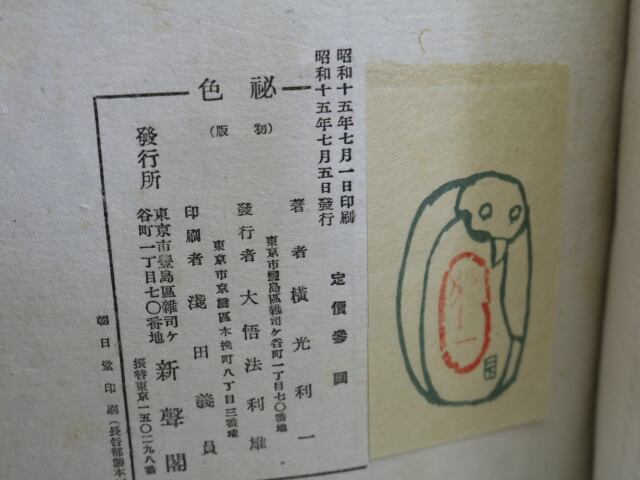 昭和十五年七月一日印刷
昭和十五年七月五日發行
定價參圓
祕色
(初版)
著者 橫光利一
東京市豐島區雜司ケ谷町一丁目七〇番地
發行者 大悟法利雄
東京市京橋區木挽町八丁目三番地
印刷者 淺田義員
發行所
東京市豐島區雜司ケ
谷町一丁目七〇番地
新聲閣
振替東京一五〇二九八番
朝日堂印刷(長谷部製本